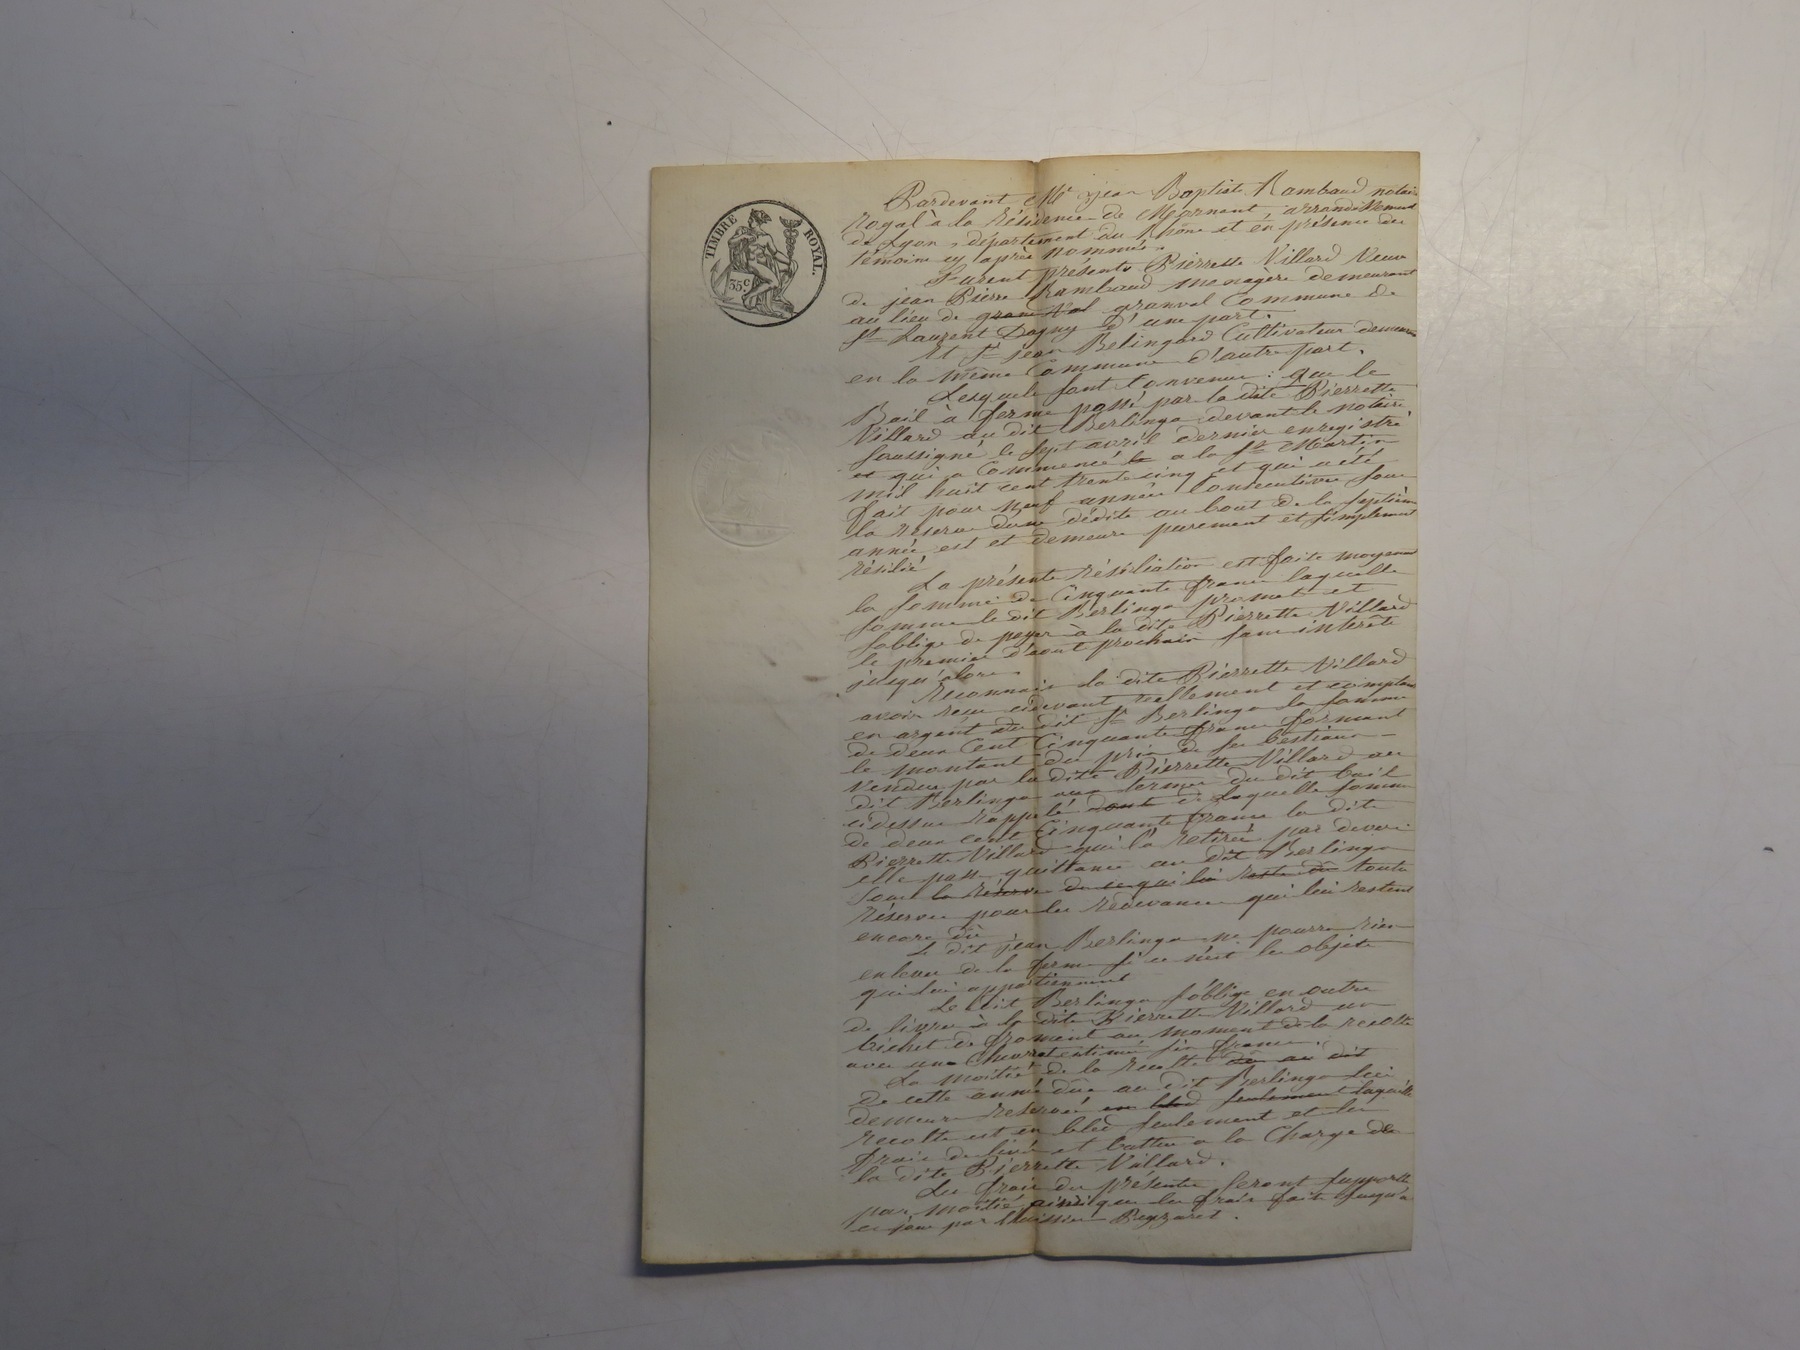 TIMBRE ROYAL.
35 c
Pardevant Me jean Baptiste Rambaud notaire
royal à la résidence de Mornant, arrondissement
de Lyon, département du Rhône et en présence des
témoins cy après nommés.
Furent présents Pierrette Villard Veuve
de jean Pierre Rambaud menagère demeurant
au lieu de granval Commune de
St Laurent Dagny d'une part.
Et Sr jean Belingard Cultivateur demeurant
en la même Commune d'autre part.
Lesquels sont Convenus : que le
Bail à ferme passé par la dite Pierrette
Villard au dit Berlinga devant le notaire
soussigné le sept avril dernier enregistré
et qui a Commencé a la St Martin
mil huit cent trente cinq et qui a été
fait pour neuf années Consécutives sous
la réserve d'une dédite au bout de la septième
année est et demeure purement et simplement
résilié
La présente résiliation est faite moyennant
la somme de Cinquante francs laquelle
somme le dit Berlinga promet et
s'oblige de payer à la dite Pierrette Villard
le premier d'aout prochain sans intérêts
jusqu'alors.
Reconnait la dite Pierrette Villard
avoir reçu cidevant réellement et comptant
en argent du dit Sr Berlinga la somme
de deux Cent Cinquante francs formant
le montant du prix de ses bestiaux
vendus par la dite Pierrette Villard au
dit Berlinga aux termes du dit bail
cidessus rappelé de laquelle somme
de deux cent Cinquante francs la dite
Pierrette Villard qui l'a retirée par devers
elle passe quittance au dit Berlinga
sous la réserve de ce qui lui reste dû toute
réserves pour les redevances qui lui restent
encore dû
Le dit jean Berlinga ne pourra rien
enlever de la ferme si ce n'est les objets
qui lui appartiennent
Le dit Berlinga s'oblige en outre
de livrer à la dite Pierrette Villard un
bichet de froment au moment de la recolte
avec une estimé six francs.
La moitié de la recolte dû au dit
de cette année due au dit Berlinga lui
demeure reservée en bled seulement laquelle
recolte est en bled seulement et les
frais de et battre a la Charge de
la dite Pierrette Villard.
Les frais des présentes seront supportés
par moitié, ainsi que les frais faits jusqu'à
ce jour par l'huissier Peyzaret.